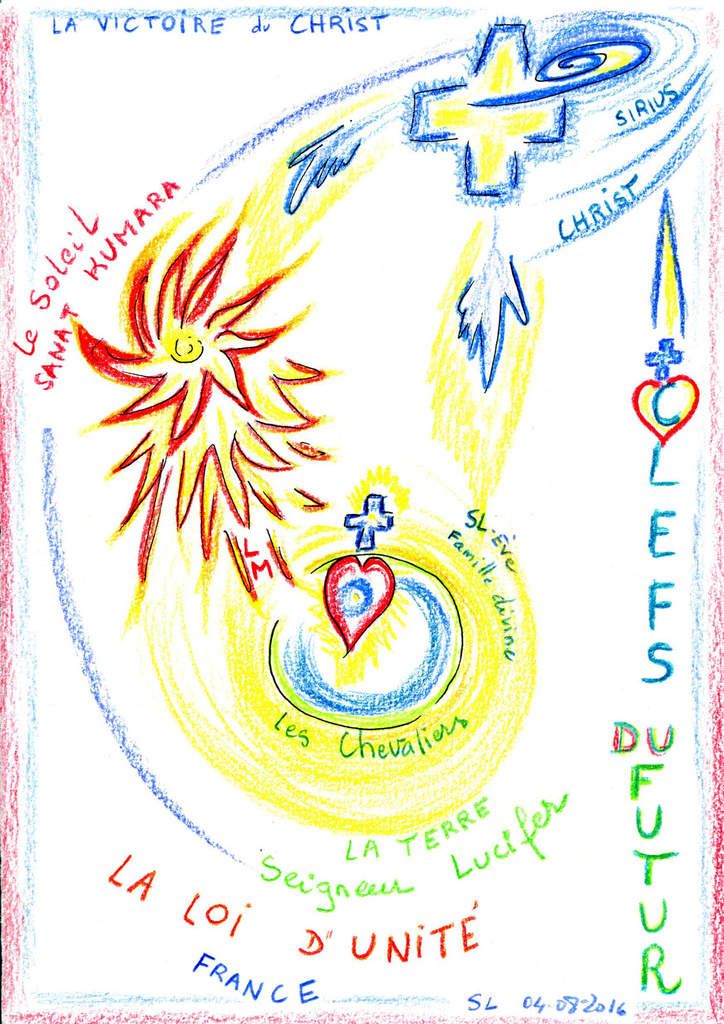 LA VICTOIRE du CHRIST
SIRIUS
CHRIST
Le Soleil
SANAT KUMARA
CLEFS
DU
FUTUR
LM
SL-Ève
Famille divine
Les Chevaliers
LA TERRE
Seigneur Lucifer
LA LOI D'UNITÉ
FRANCE
SL 04-08-2016